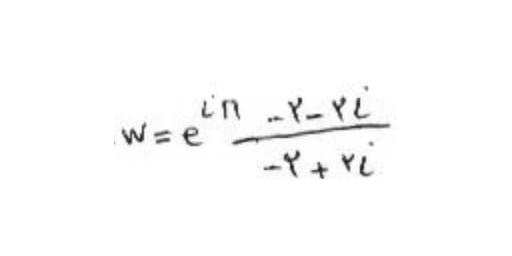 w = e^{iπ} \frac{-۲-۲i}{-۲+۲i}